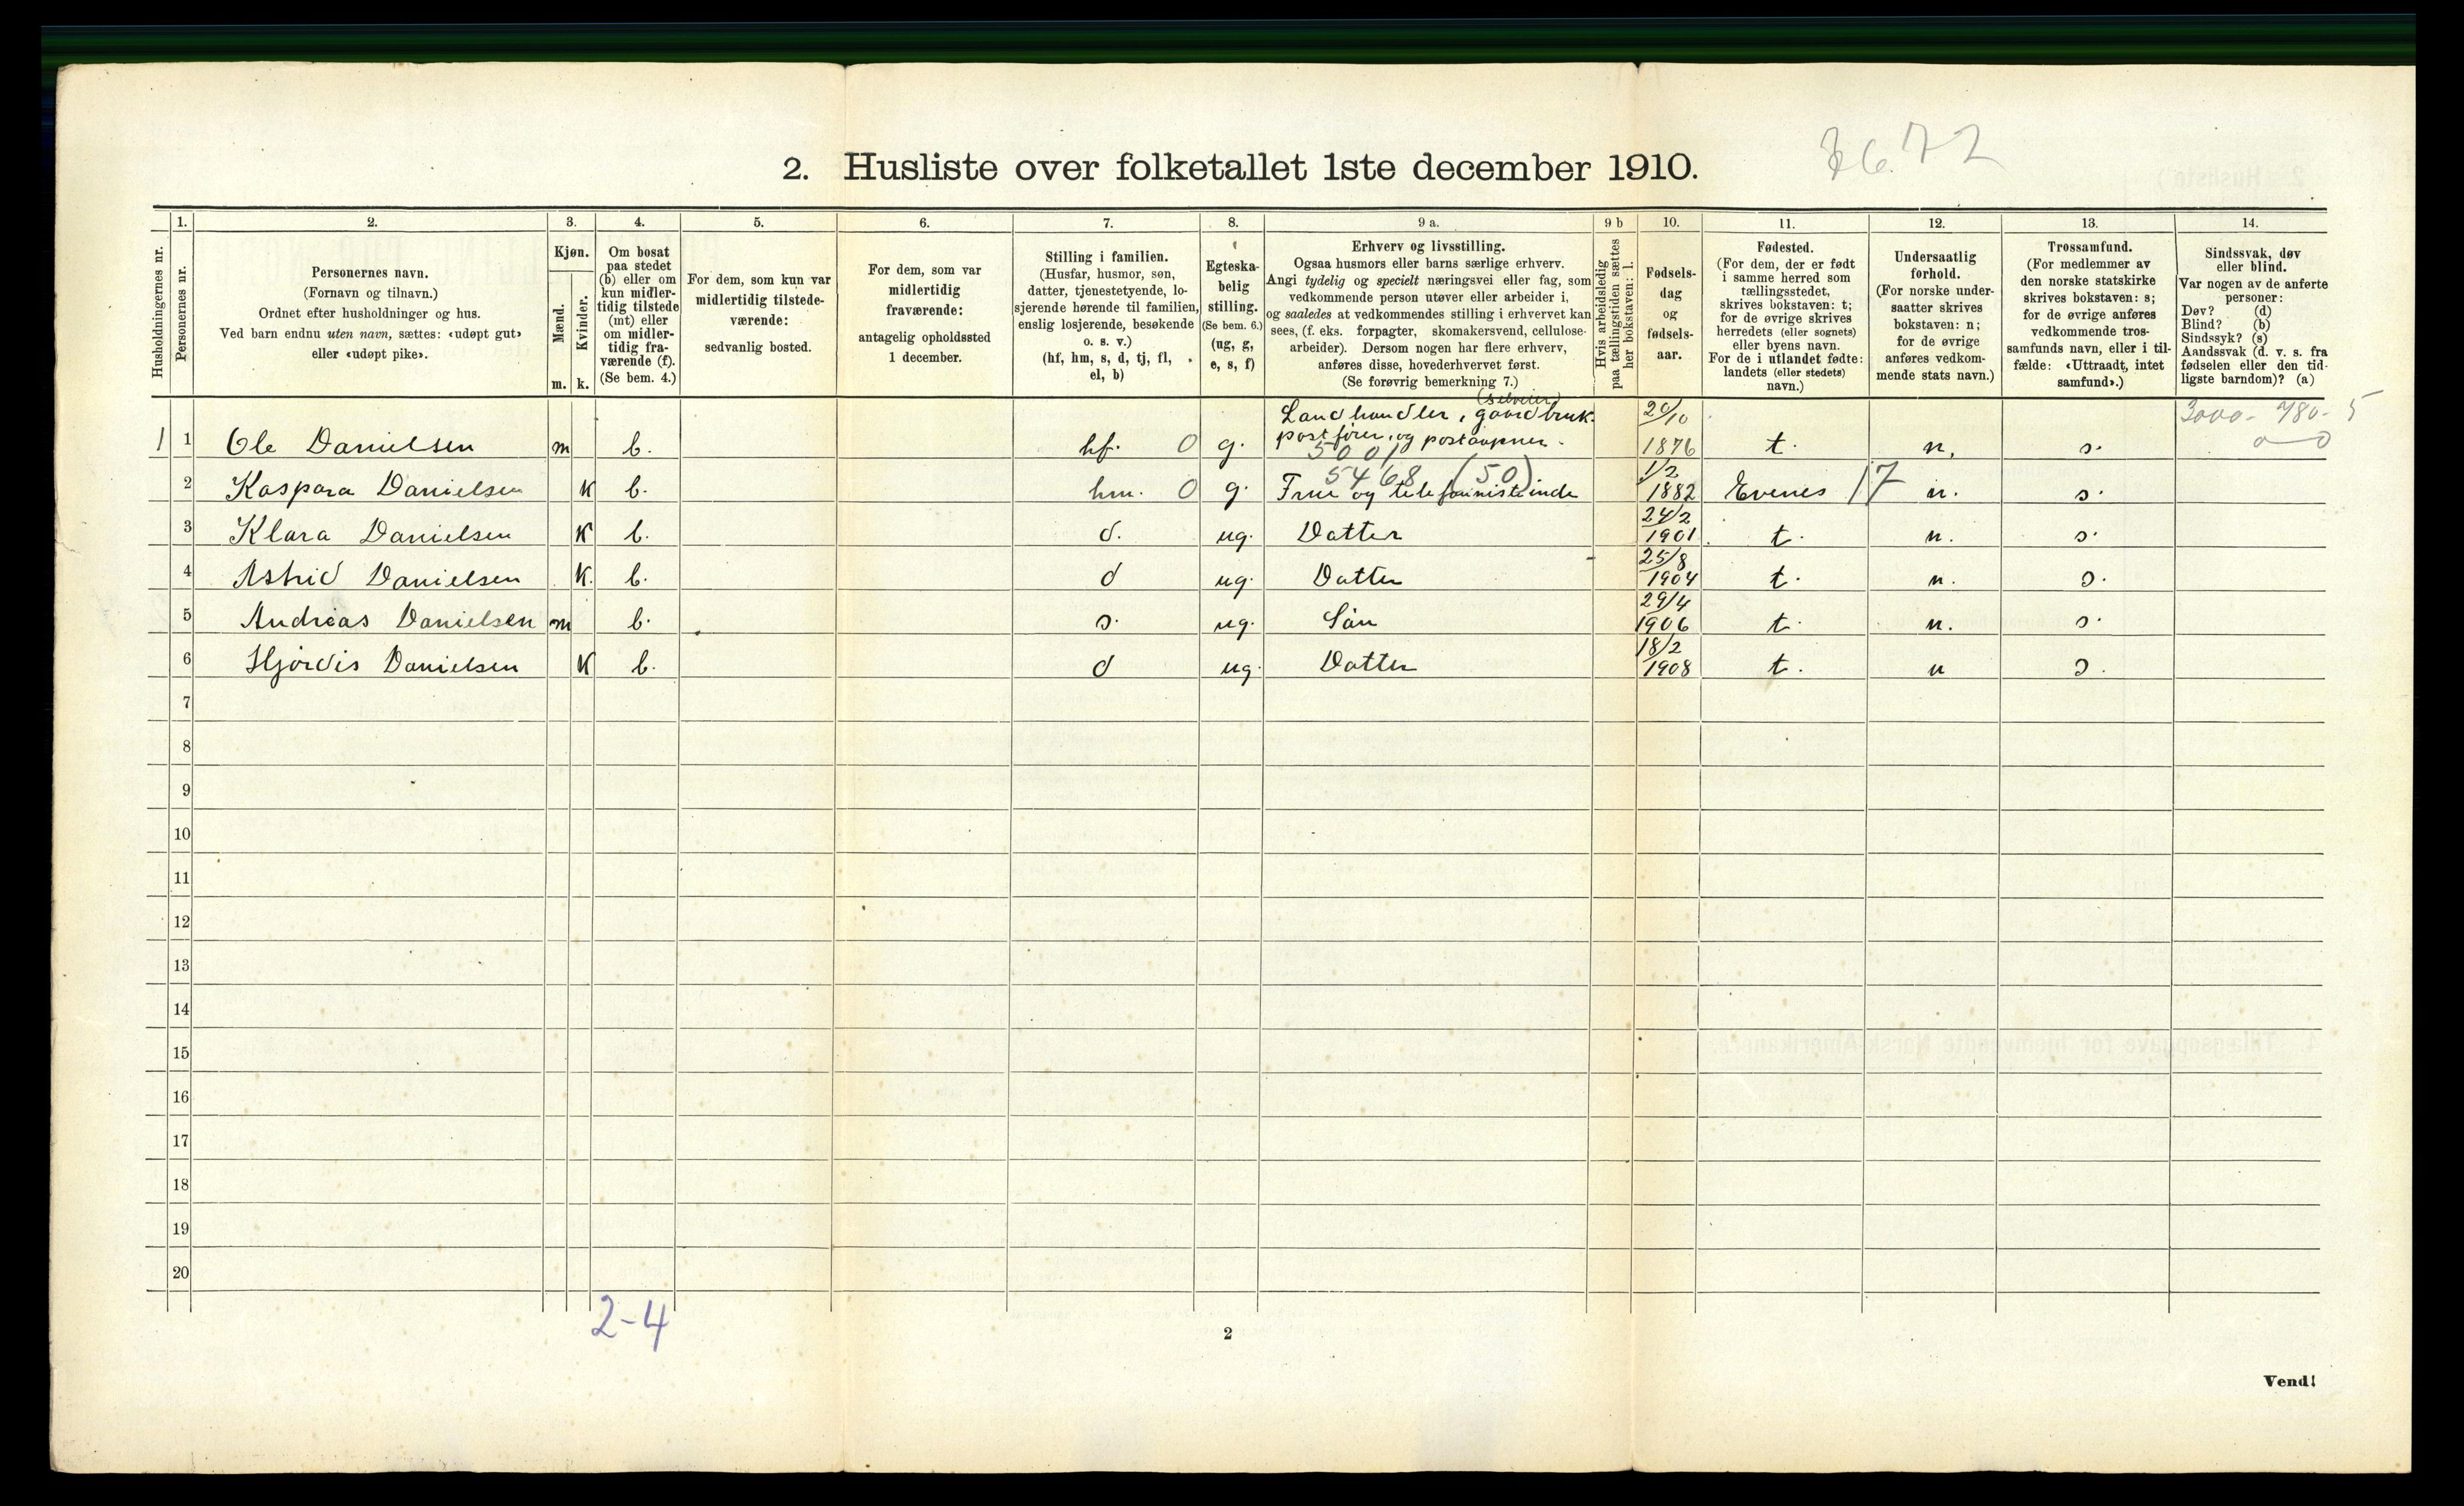 2. Husliste over folketallet 1ste december 1910.
1. 2. 3. 4. 5. 6. 7. 8. 9 a. 9 b 10. 11. 12. 13. 14.
Husholdningernes nr.
Personernes nr.
Personernes navn.
(Fornavn og tilnavn.)
Ordnet efter husholdninger og hus.
Ved barn endnu uten navn, sættes: «udøpt gut»
eller «udøpt pike».
Kjøn.
Mænd.
Kvinder.
m. k.
Om bosat
paa stedet
(b) eller om
kun midler-
tidig tilstede
(mt) eller
om midler-
tidig fra-
værende (f).
(Se bem. 4.)
For dem, som kun var
midlertidig tilstede-
værende:
sedvanlig bosted.
For dem, som var
midlertidig
fraværende:
antagelig opholdssted
1 december.
Stilling i familien.
(Husfar, husmor, søn,
datter, tjenestetyende, lo-
sjerende hørende til familien,
enslig losjerende, besøkende
o. s. v.)
(hf, hm, s, d, tj, fl,
el, b)
Egteska-
belig
stilling.
(Se bem. 6.)
(ug, g,
e, s, f)
Erhverv og livsstilling.
Ogsaa husmors eller barns særlige erhverv.
Angi tydelig og specielt næringsvei eller fag, som
vedkommende person utøver eller arbeider i,
og saaledes at vedkommendes stilling i erhvervet kan
sees, (f. eks. forpagter, skomakersvend, cellulose-
arbeider). Dersom nogen har flere erhverv,
anføres disse, hovederhvervet først.
(Se forøvrig bemerkning 7.)
Hvis arbeidsledig
paa tællingstiden sættes
her bokstaven: l.
Fødsels-
dag
og
fødsels-
aar.
Fødested.
(For dem, der er født
i samme herred som
tællingsstedet,
skrives bokstaven: t;
for de øvrige skrives
herredets (eller sognets)
eller byens navn.
For de i utlandet fødte:
landets (eller stedets)
navn.)
Undersaatlig
forhold.
(For norske under-
saatter skrives
bokstaven: n;
for de øvrige
anføres vedkom-
mende stats navn.)
Trossamfund.
(For medlemmer av
den norske statskirke
skrives bokstaven: s;
for de øvrige anføres
vedkommende tros-
samfunds navn, eller i til-
fælde: «Uttraadt, intet
samfund».)
Sindssvak, døv
eller blind.
Var nogen av de anførte
personer:
Døv? (d)
Blind? (b)
Sindssyk? (s)
Aandssvak (d. v. s. fra
fødselen eller den tid-
ligste barndom)? (a)
(selveier)
Landhandler, gaardbruk. 20/10 3000- 780- 5
postfører, og postaapner.
1 1 Ole Danielsen m b. hf. 0 g. 5001 1876 t. n. s. 0 0
5468 (50) 1/2
2 Kaspara Danielsen k b. hm. 0 g. Frue og telefonistinde 1882 Evenes 17 n. s.
24/2
3 Klara Danielsen k b. d. ug. Datter 1901 t. n. s.
25/8
4 Astrid Danielsen k. b. d ug. Datter 1904 t. n. s.
29/4
5 Andreas Danielsen m b. s. ug. Sön 1906 t. n. s.
18/2
6 Hjördis Danielsen k b. d ug. Datter 1908 t. n s.
7
8
9
10
11
12
13
14
15
16
17
18
19
20
2-4
2
Vend!